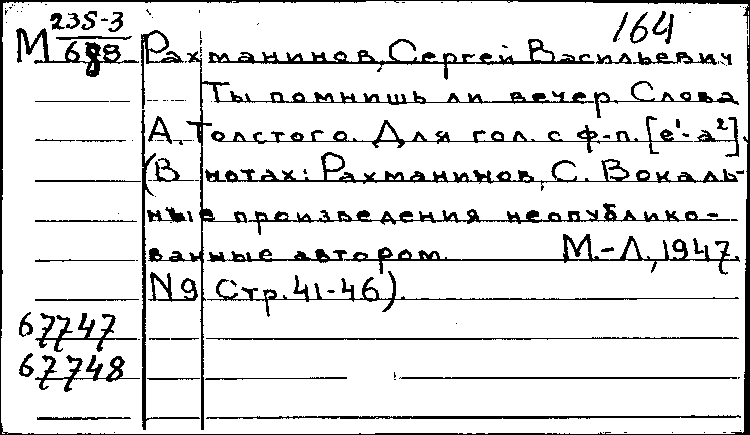 164
М 235-3
688 Рахманинов, Сергей Васильевич
Ты помнишь ли вечер. Слова
А. Толстого. Для гол. с ф-п. [e¹-a²].
(В нотах: Рахманинов, С. Вокаль-
ные произведения неопублико-
ванные автором. М.-Л., 1947.
N 9. Стр. 41-46).
67747
67748